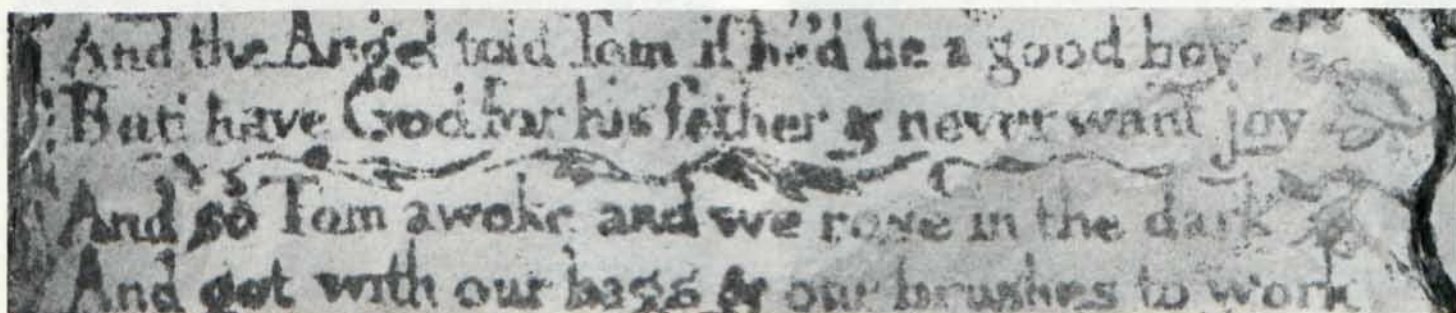 And the Angel told Tom if he'd be a good boy,
have God for his father & never want joy
And so Tom awoke and we rose in the dark
And got with our bags & our brushes to work